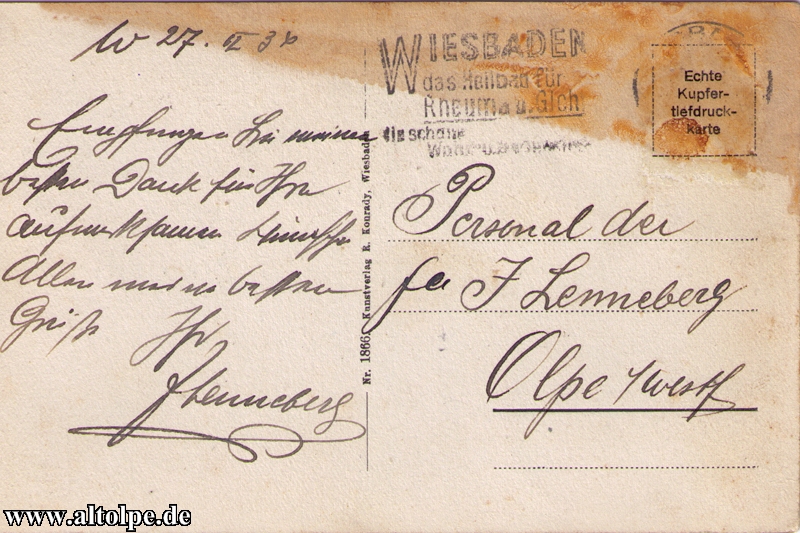 W 27. II 36
Empfangen Sie meinen
besten Dank für Ihre
aufmerksamen Wünsche
Allen meine besten
Grüße Ihr
J Lenneberg
Nr. 1866. Kunstverlag R. Konrady, Wiesbaden
WIESBADEN
das Heilbad für
Rheuma u. Gicht
die schöne
Echte
Kupfer-
tiefdruck-
karte
Personal der
fa J Lenneberg
Olpe /Westf
www.altolpe.de